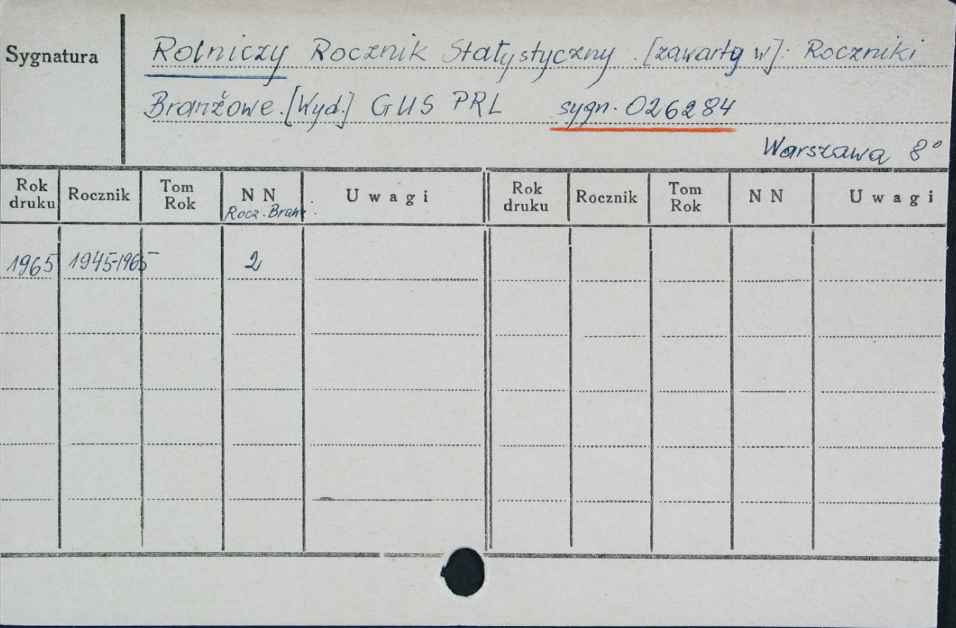 Sygnatura
Rolniczy Rocznik Statystyczny. [zawarty w]: Roczniki
Branżowe. [Wyd.] GUS PRL sygn. 026284
Warszawa 8°
Rok druku Rocznik Tom Rok N N Uwagi Rok druku Rocznik Tom Rok N N Uwagi
Rocz. Branż.
1965 1945-1965 2